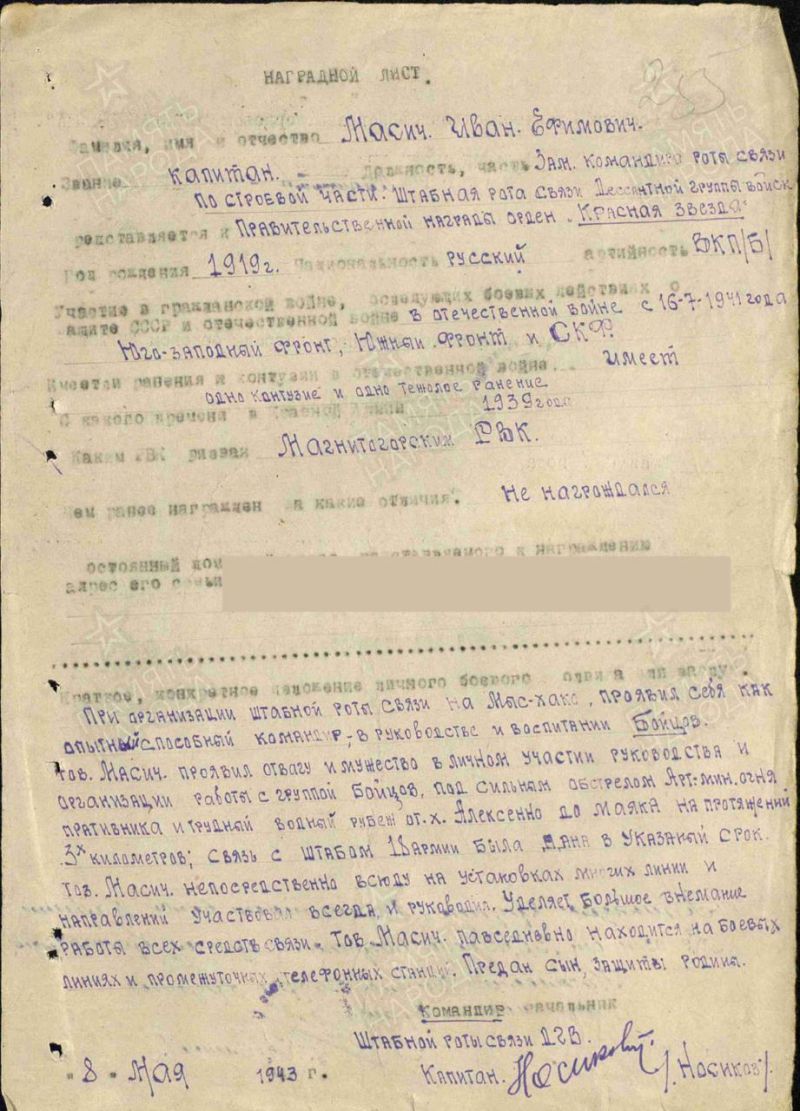 НАГРАДНОЙ ЛИСТ.
255
Фамилия, имя и отчество Масич. Иван. Ефимович.
Звание капитан. должность, часть Зам. командира роты связи
по строевой части. Штабная рота связи Дессантной группы войск
редставляется к Правительственной награды орден „Красная звезда"
Год рождения 1919г. Национальность русский артийность ВКП/б/
Участие в гражданской войне, оследующих боевых действиях о
ащите СССР и отечественной войне в отечественной войне с 16-7-1941 года
Юго-западный фронт, Южный фронт и СКФ.
Имеет ли ранения и контузии в отечественной войне... имеет
одно контузие и одно тежолое ранение
С какого времени в Красной Армии 1939 года
Каким РВК ризван Магнитогорским РВК.
ем ранее награжден а какие отличия. не награждался
остоянный дом к награждению
адрес его семьи
Краткое, конкретное изложение личного боевого одвига или заслуг.
При организации штабной роты связи на Мыс-хако, проявил себя как
опытный способный командир, в руководстве и воспитании Бойцов.
тов. Масич. проявил отвагу и мужество в личном участии руководства и
организации работы с группой Бойцов, под сильном обстрелом Арт-мин. огня
пративника и трудной водной рубеж от.х. Алексенно до маяка на протяжений
3х километров; связь с штабом 18 армии была дана в указаный срок.
Тов. Масич. непосредственно всюду на установках многих линии и
направлений участвовал всегда и руководил. Уделяет большое внемание
работы всех средств связи. Тов. Масич. павседневно находится на боевых
линиях и промежуточных телефонных станций. Предан сын, защиты родина.
Командир начальник
Штабной роты связи ДГВ.
Капитан. Носиков /Носиков/.
„8" Мая 1943 г.